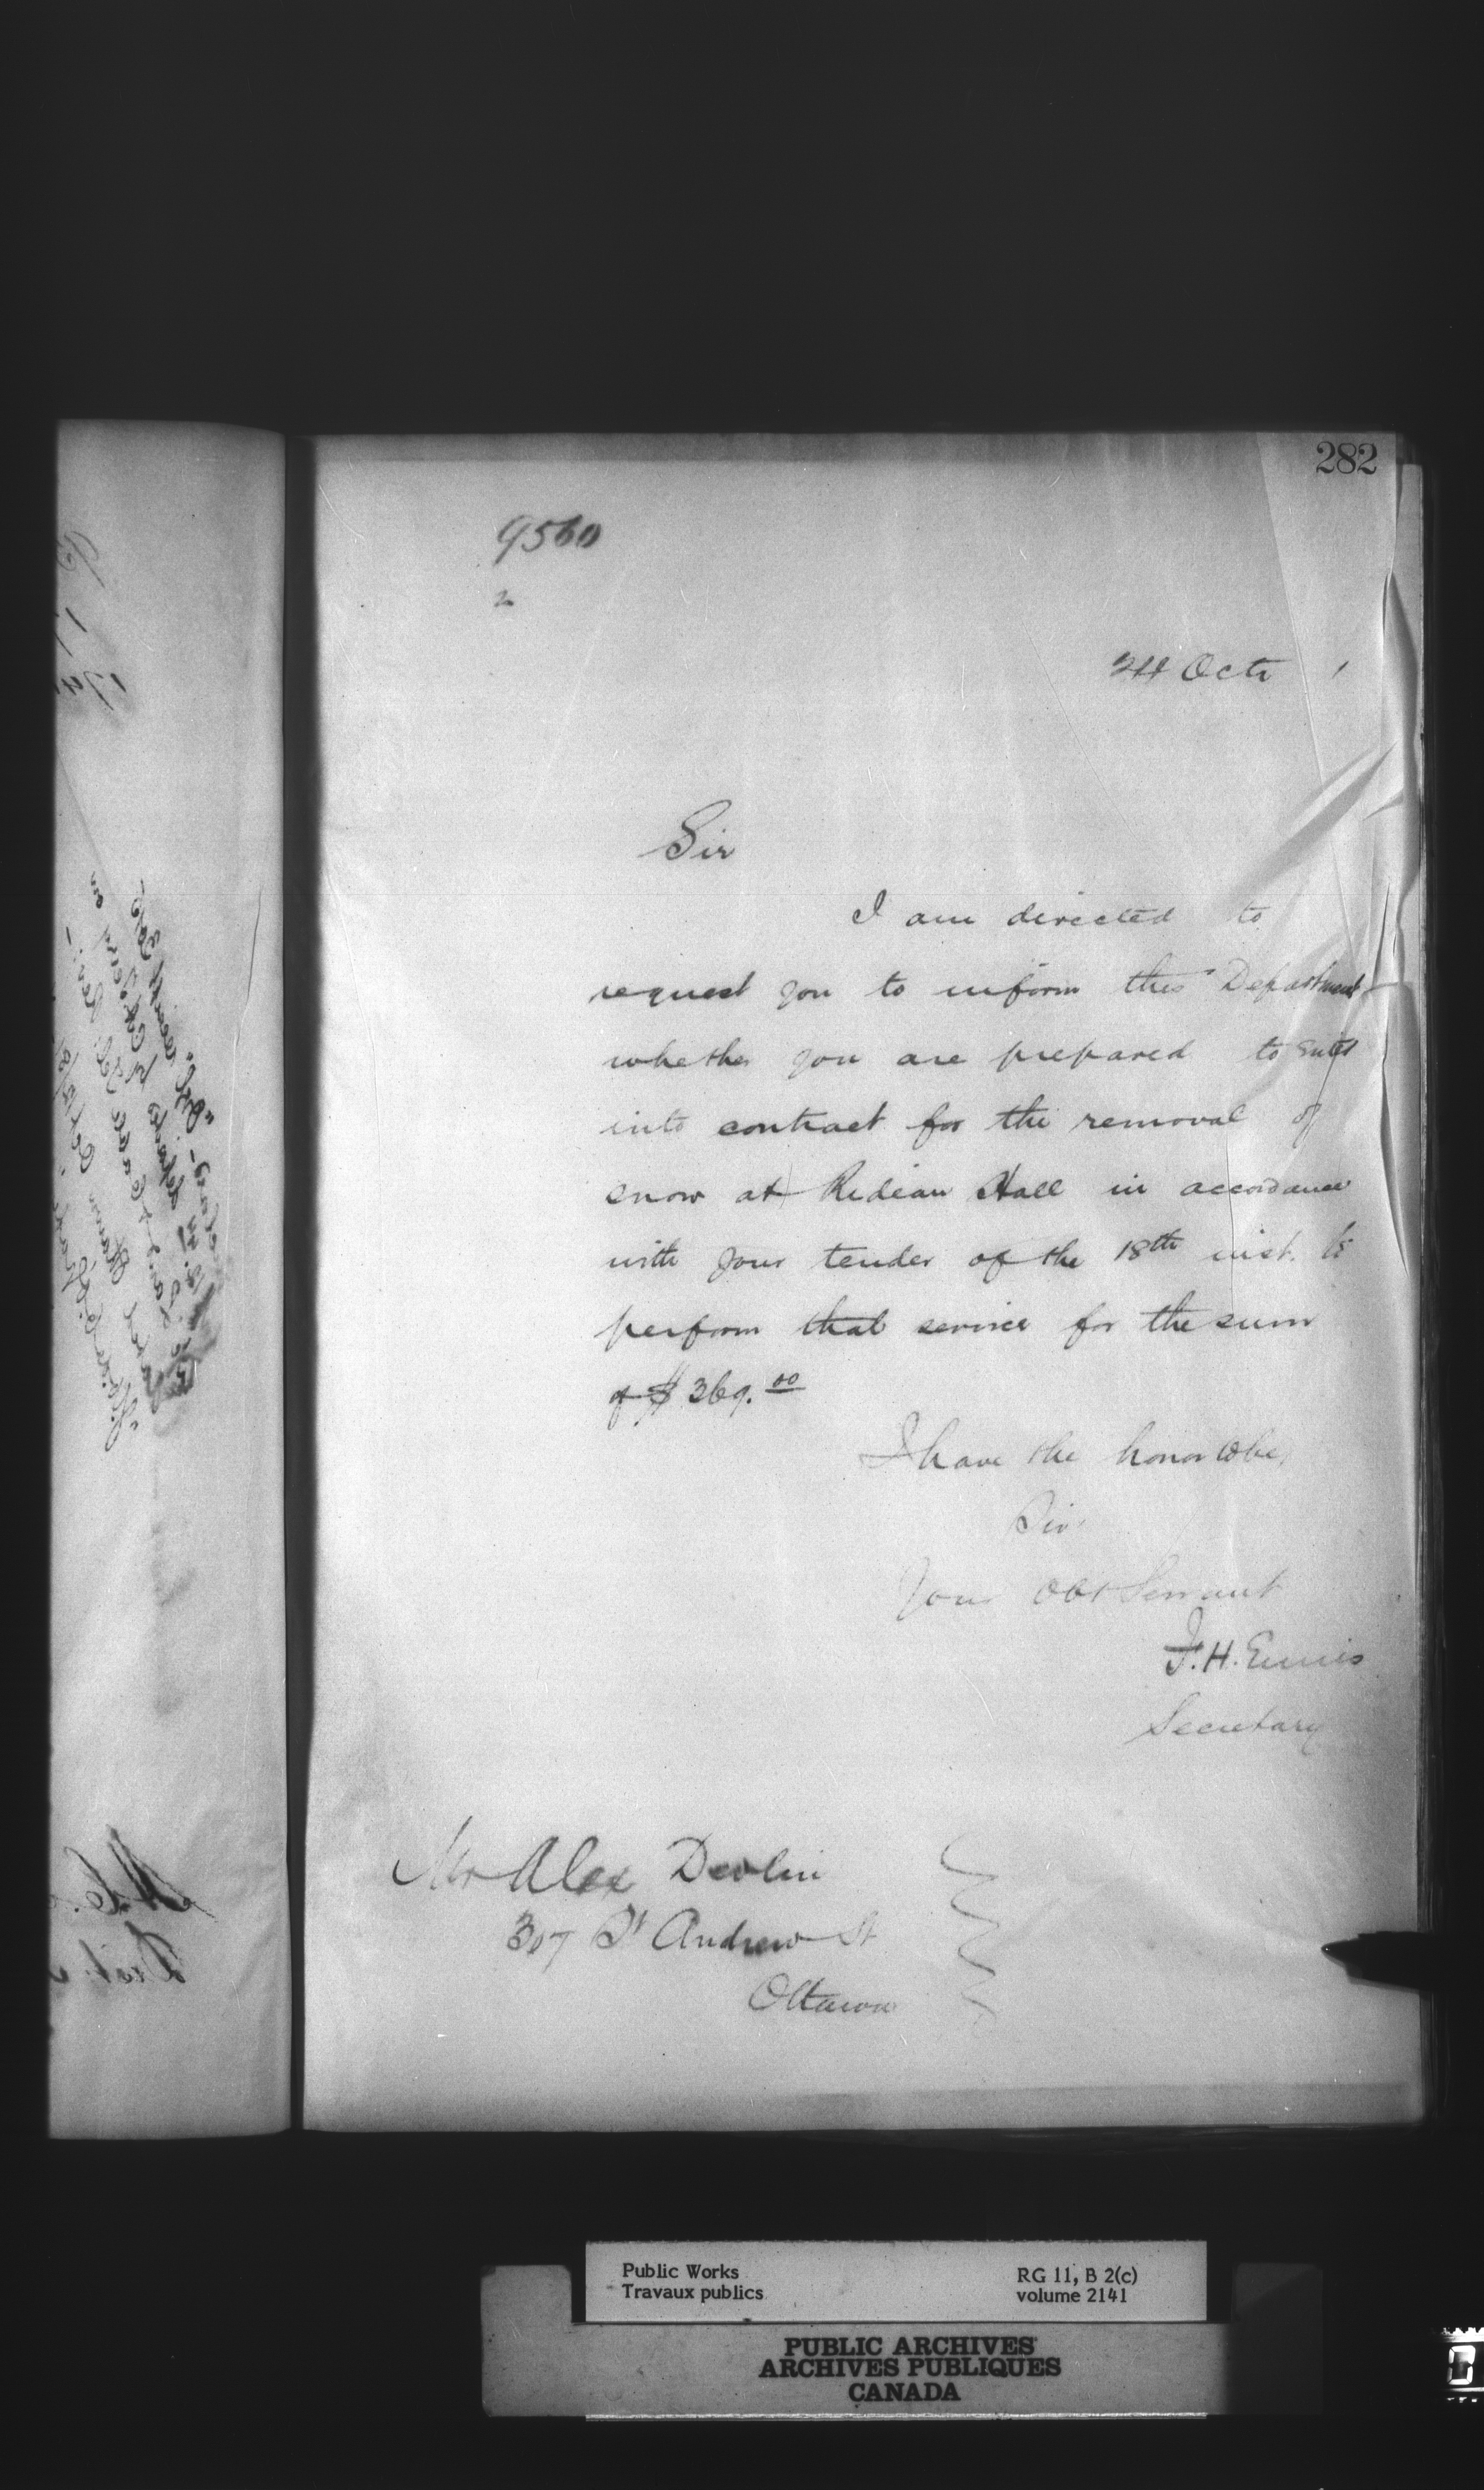 282
9560
2
24 Octr 1
Sir
I am directed to
request you to inform this Department
whether you are prepared to enter
into contract for the removal of
snow at Rideau Hall in accordance
with your tender of the 18th inst. to
perform that service for the sum
of $369.00
I have the honor to be,
Sir
Your Obt Servant
F.H. Ennis
Secretary
Mr Alex Devlin
307 St Andrew St
Ottawa
Public Works
Travaux publics
RG 11, B 2(c)
volume 2141
PUBLIC ARCHIVES
ARCHIVES PUBLIQUES
CANADA